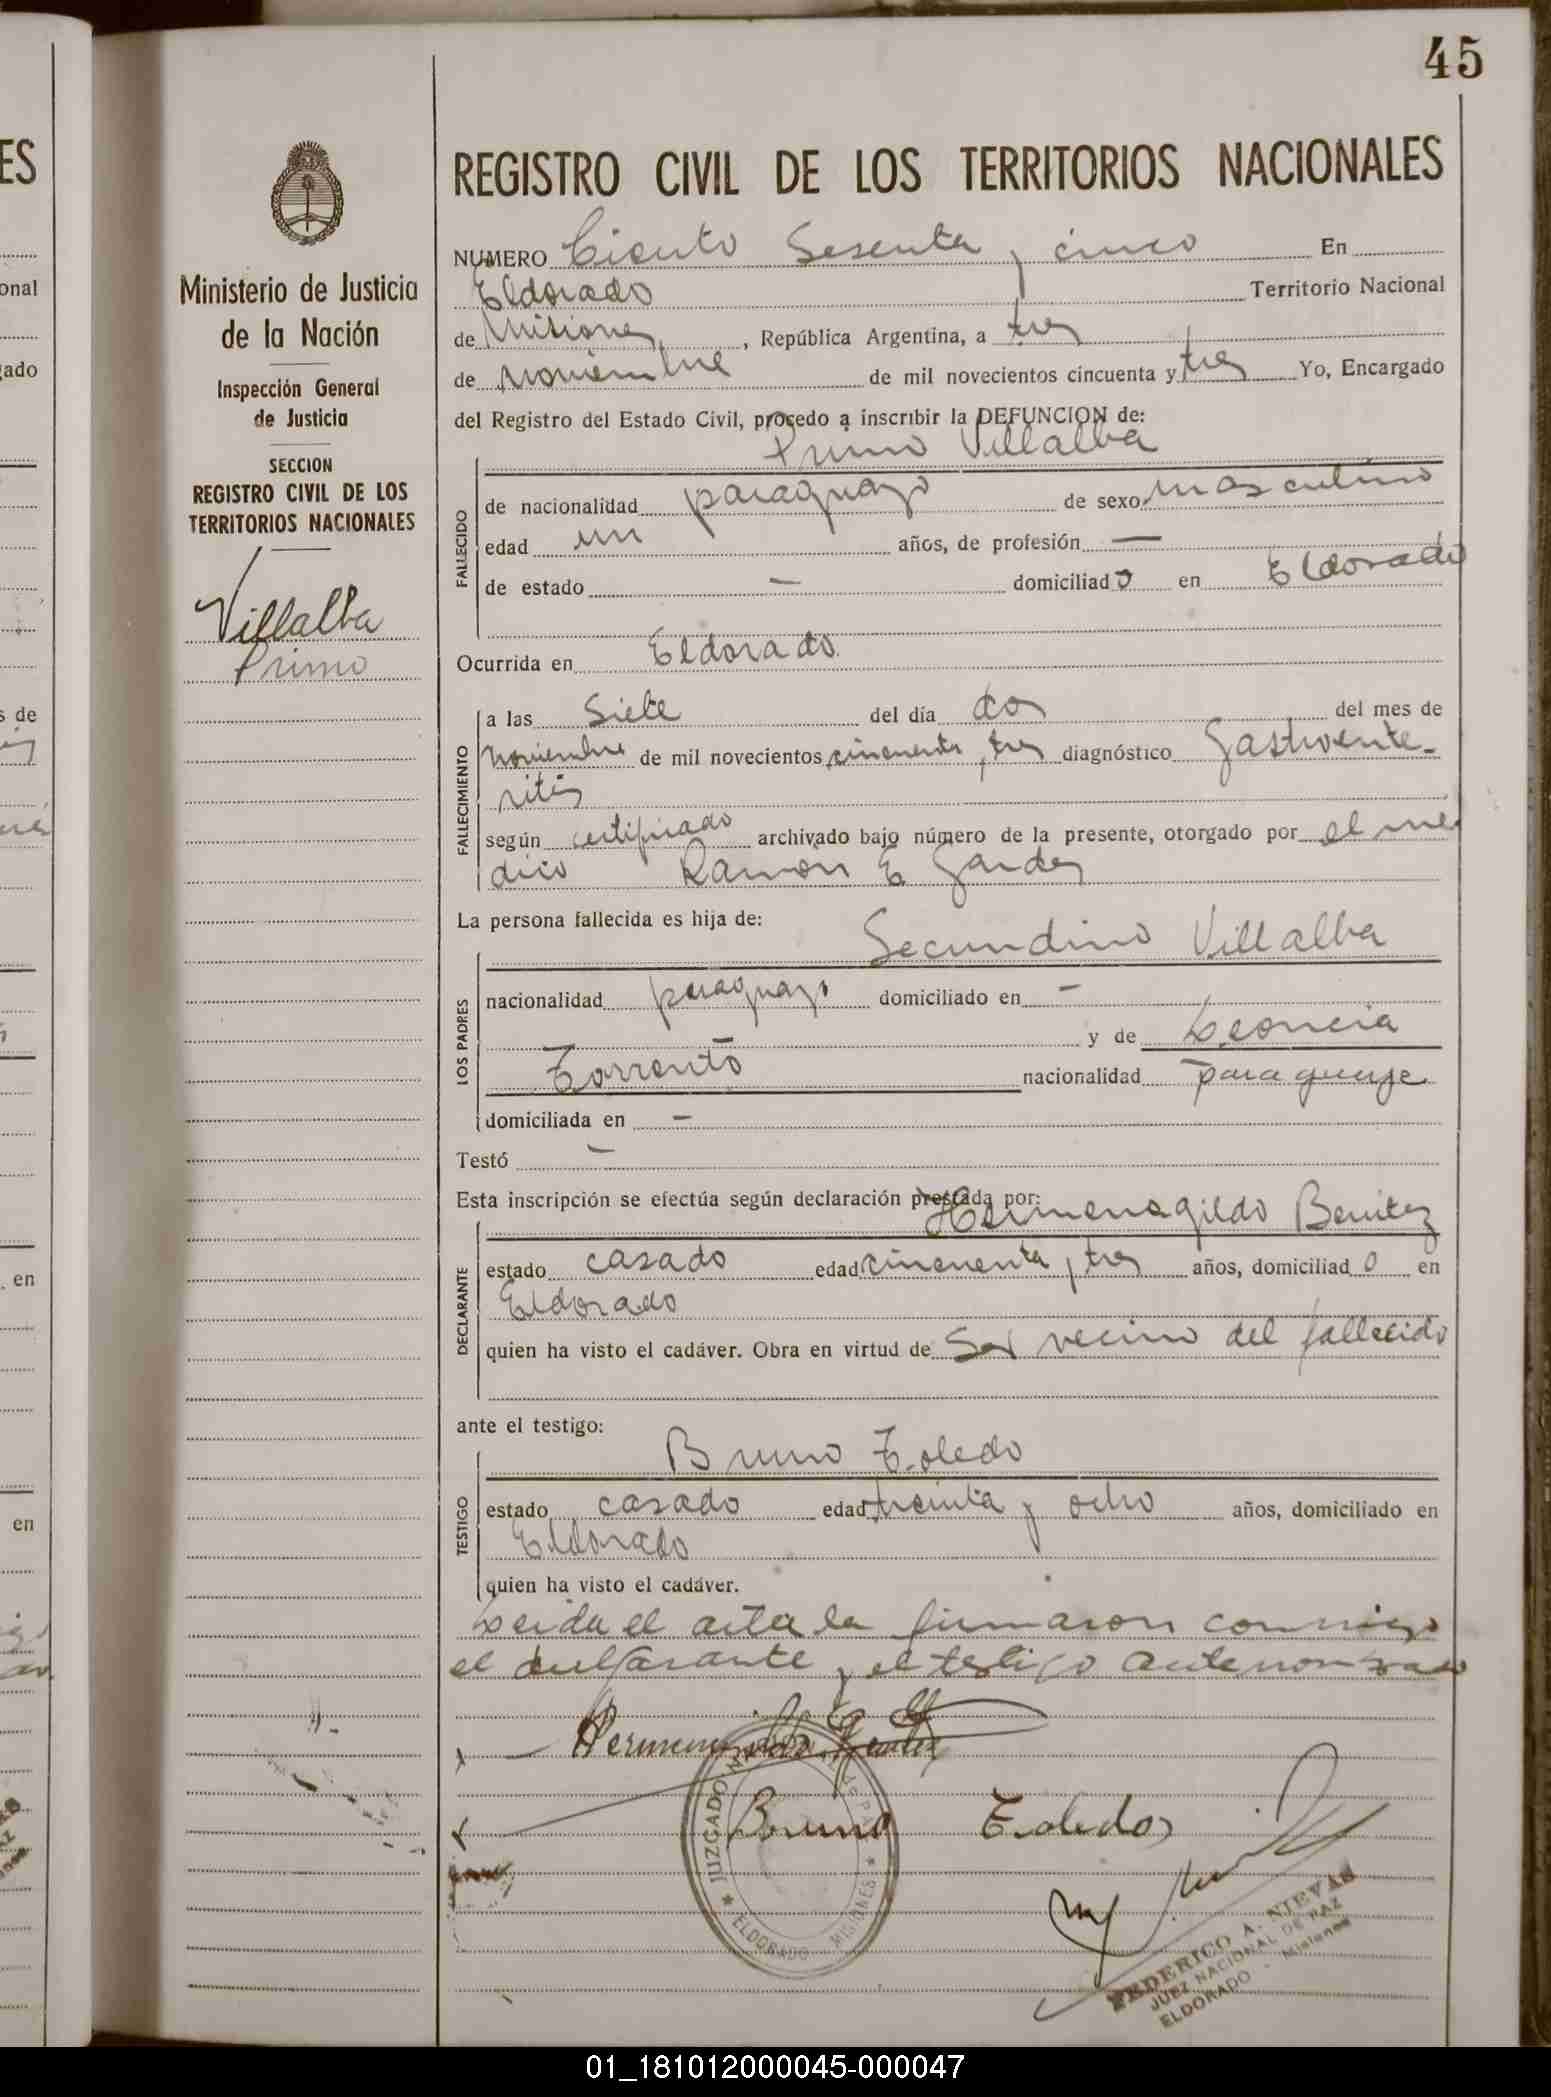 45
REGISTRO CIVIL DE LOS TERRITORIOS NACIONALES
Ministerio de Justicia
de la Nación
Inspección General
de Justicia
SECCION
REGISTRO CIVIL DE LOS
TERRITORIOS NACIONALES
Villalba
Primo
NUMERO Ciento Sesenta y cinco En
Eldorado Territorio Nacional
de Misiones, República Argentina, a tres
de noviembre de mil novecientos cincuenta y tres Yo, Encargado
del Registro del Estado Civil, procedo a inscribir la DEFUNCION de:
Primo Villalba
FALLECIDO
de nacionalidad paraguayo de sexo masculino
edad un años, de profesión —
de estado — domiciliado en Eldorado
Ocurrida en Eldorado
FALLECIMIENTO
a las Siete del día dos del mes de
noviembre de mil novecientos cincuenta y tres diagnóstico Gastroente-
ritis
según certificado archivado bajo número de la presente, otorgado por el me
dico Ramon E
La persona fallecida es hija de:
Secundino Villalba
LOS PADRES
nacionalidad paraguayo domiciliado en —
y de Leoncia
Torrento nacionalidad paraguaya
domiciliada en —
Testó —
Esta inscripción se efectúa según declaración prestada por:
Hermenagildo Benitez
DECLARANTE
estado casado edad cincuenta y tres años, domiciliado en
Eldorado
quien ha visto el cadáver. Obra en virtud de Ser vecino del fallecido
ante el testigo:
Bruno Toledo
TESTIGO
estado casado edad treinta y ocho años, domiciliado en
Eldorado
quien ha visto el cadáver.
Leida el acta la firmaron conmigo
el declarante y el testigo antenombrado
Bruno Toledo
JUZGADO DE PAZ
★ ELDORADO - MISIONES ★
FEDERICO A. NIEVAS
JUEZ NACIONAL DE PAZ
ELDORADO - Misiones
01_181012000045-000047